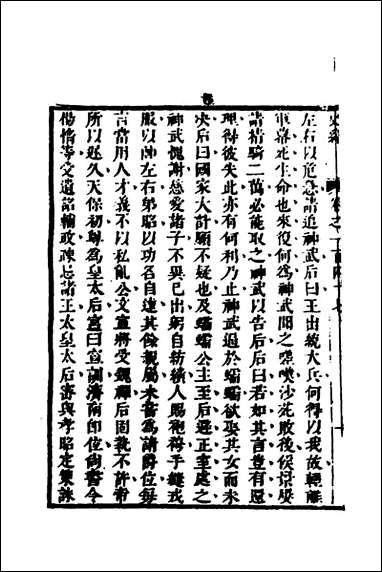 左右以危急請追神武后曰王出統大兵何得以我故輕離
軍幕死生命也來復何爲神武聞之嗟嘆沙苑敗後侯景屢
請精騎二萬必能取之神武以告后后曰若如其言豈有還
理得彼失此亦有何利乃止神武逼於蠕蠕欲娶其女而未
决后曰國家大計願不疑也及蠕蠕公主至后避正室處之
神武愧謝慈愛諸子不異已出躬自紡績人賜袍袴手縫戎
服以帥左右弟昭以功名自達其餘親屬未嘗爲請爵位每
言當用人才義不以私亂公文宣將受魏禪后固執不許帝
所以逖久天保初尊爲皇太后宮曰宣訓濟南即位尚書令
楊愔等受遺詔輔政疎忌諸王太皇太后審與孝昭定策誅